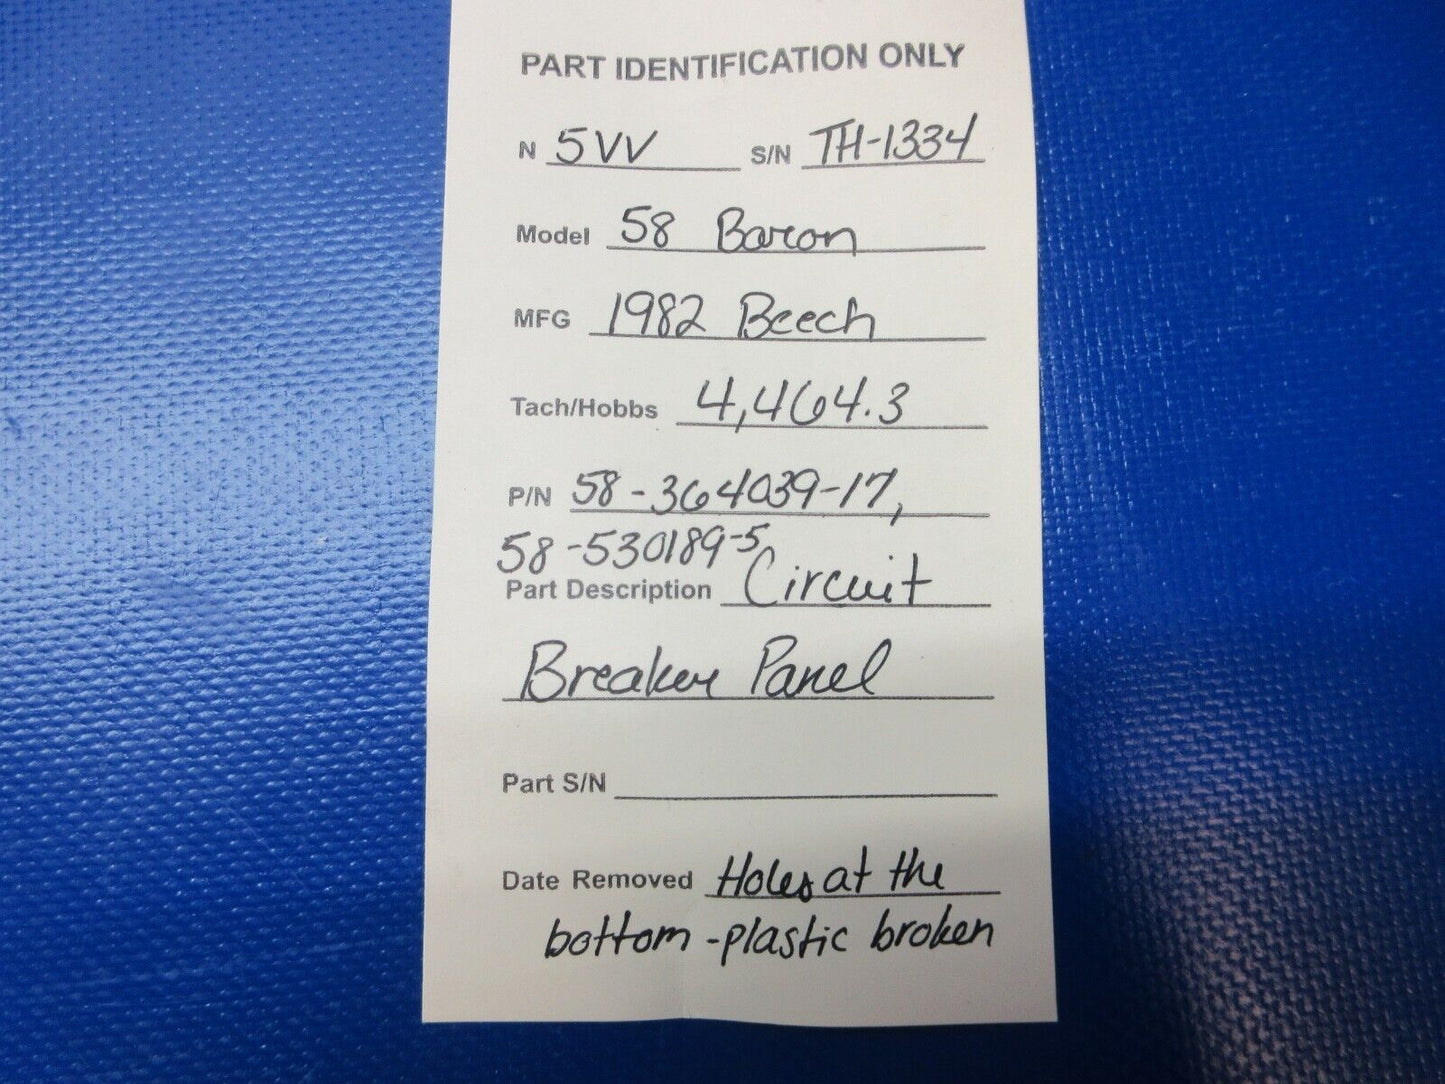 PART IDENTIFICATION ONLY
N 5VV S/N TH-1334
Model 58 Baron
MFG 1982 Beech
Tach/Hobbs 4,464.3
P/N 58-364039-17,
58-530189-5
Part Description Circuit
Breaker Panel
Part S/N
Date Removed Holes at the
bottom-plastic broken